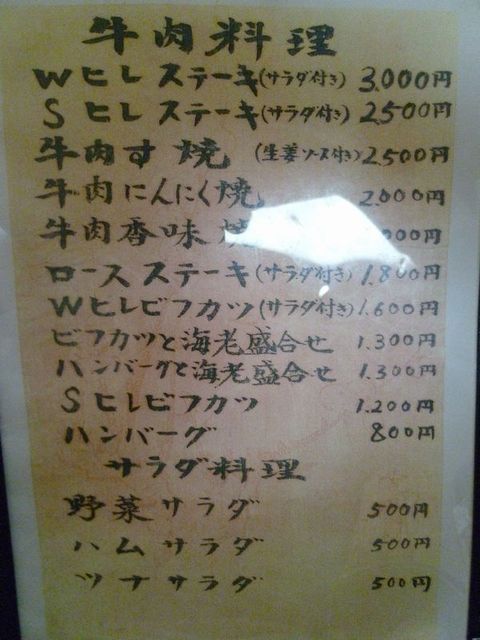 牛肉料理
Wヒレステーキ(サラダ付き) 3.000円
Sヒレステーキ(サラダ付き) 2.500円
牛肉す焼 (生姜ソース付き) 2.500円
牛肉にんにく焼 2.000円
牛肉香味焼 000円
ロースステーキ(サラダ付き) 1.800円
Wヒレビフカツ(サラダ付き) 1.600円
ビフカツと海老盛合せ 1.300円
ハンバーグと海老盛合せ 1.300円
Sヒレビフカツ 1.200円
ハンバーグ 800円
サラダ料理
野菜サラダ 500円
ハムサラダ 500円
ツナサラダ 500円